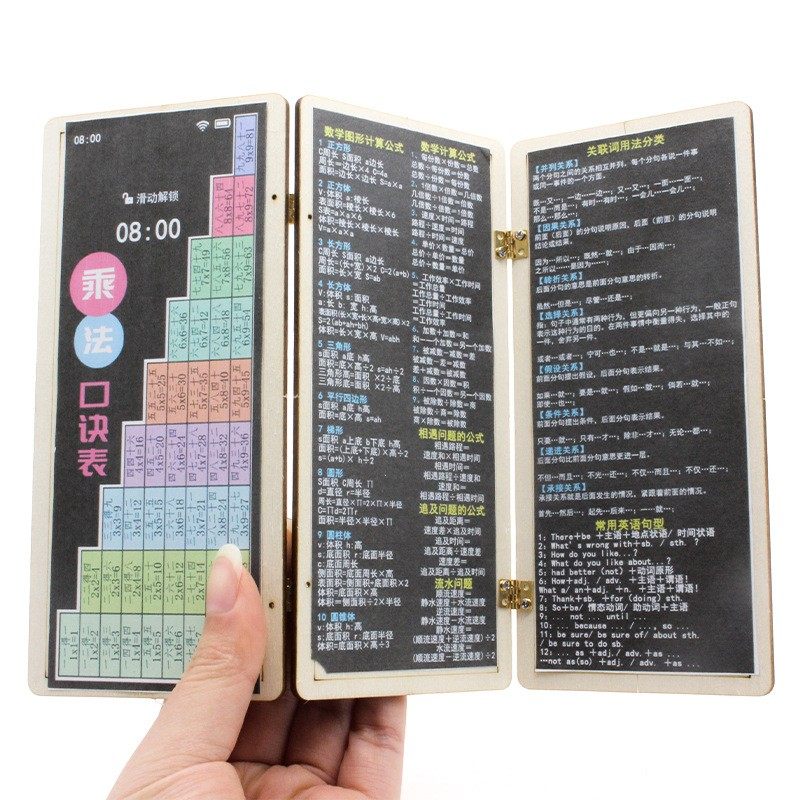 08:00
滑动解锁
08:00
乘
法
口诀表
九九八十一
9x9=81
8x8=64
8x9=72
7x7=49
7x8=56
7x9=63
6x6=36
6x7=42
6x8=48
6x9=54
5x5=25
5x6=30
5x7=35
5x8=40
5x9=45
4x4=16
4x5=20
4x6=24
4x7=28
4x8=32
4x9=36
3x3=9
3x4=12
3x5=15
3x6=18
3x7=21
3x8=24
3x9=27
2x2=4
2x3=6
2x4=8
2x5=10
2x6=12
2x7=14
1x1=1
1x2=2
1x3=3
1x4=4
1x5=5
1x6=6
数学图形计算公式
1 正方形
C周长 S面积 a边长
周长=边长×4 C=4a
面积=边长×边长 S=a×a
2 正方体
V:体积 a:棱长
表面积=棱长×棱长×6
S表=a×a×6
体积=棱长×棱长×棱长
V=a×a×a
3 长方形
C周长 S面积 a边长
周长=(长+宽)×2 C=2(a+b)
面积=长×宽 S=ab
4 长方体
V:体积 s:面积
a:长 b:宽 h:高
表面积(长×宽+长×高+宽×高)×2
S=2(ab+ah+bh)
体积=长×宽×高 V=abh
5 三角形
s面积 a底 h高
面积=底×高÷2 s=ah÷2
三角形高=面积×2÷底
三角形底=面积×2÷高
6 平行四边形
s面积 a底 h高
面积=底×高 s=ah
7 梯形
s面积 a上底 b下底 h高
面积=(上底+下底)×高÷2
s=(a+b)×h÷2
8 圆形
S面积 C周长 ∏
d=直径 r=半径
周长=直径×∏=2×∏×半径
C=∏d=2∏r
面积=半径×半径×∏
9 圆柱体
v:体积 h:高
s:底面积 r:底面半径
c:底面周长
侧面积=底面周长×高
表面积=侧面积+底面积×2
体积=底面积×高
体积=侧面积÷2×半径
10 圆锥体
v:体积 h:高
s:底面积 r:底面半径
体积=底面积×高÷3
数学计算公式
1、每份数×份数=总数
总数÷每份数=份数
总数÷份数=每份数
2、1倍数×倍数=几倍数
几倍数÷1倍数=倍数
几倍数÷倍数=1倍数
3、速度×时间=路程
路程÷速度=时间
路程÷时间=速度
4、单价×数量=总价
总价÷单价=数量
总价÷数量=单价
5、工作效率×工作时间
=工作总量
工作总量÷工作效率
=工作时间
工作总量÷工作时间
=工作效率
6、加数+加数=和
和-一个加数=另一个加数
7、被减数-减数=差
被减数-差=减数
差+减数=被减数
8、因数×因数=积
积÷一个因数=另一个因数
9、被除数÷除数=商
被除数÷商=除数
商×除数=被除数
相遇问题的公式
相遇路程=
速度和×相遇时间
相遇时间=
相遇路程÷速度和
速度和=
相遇路程÷相遇时间
追及问题的公式
追及距离=
速度差×追及时间
追及时间=
追及距离÷速度差
速度差=
追及距离÷追及时间
流水问题
顺流速度=
静水速度+水流速度
逆流速度=
静水速度-水流速度
静水速度=
(顺流速度+逆流速度)÷2
水流速度=
(顺流速度-逆流速度)÷2
关联词用法分类
【并列关系】
两个分句之间的关系相互并列，每个分句各说一件事
或同一事件的一个方面。
既…又…；一边…一边…；又一又…；一面…一面…；
不是…而是…；有时…有时…；一会儿…一会儿…；
那么…那么…；
【因果关系】
前面（后面）的分句说明原因，后面（前面）的分句说明
结论或结果。
因为…所以…；既然…就…；由于…因而…；
之所以……是因为……；
【转折关系】
后面分句的意思是前面分句意思的转折。
虽然…但是…；尽管…还是…；
【选择关系】
指：句子中通常有两种行为，但更偏向另一种行为，一般正句
表示这种行为的目的。在两件事情中衡量得失，选择其中的
一件，舍弃另一件。
或者…或者…；宁可…也…；不是…就是…；与其…不如…；
【假设关系】
前面分句提出假设，后面分句表示结果。
如果…就…；要是…就…；假如…就…；倘若…就…；
即使…也…；
【条件关系】
前面分句提出条件，后面分句表示结果。
只要…就…；只有…才…；除非…才…；无论…都…；
【递进关系】
后面分句比前面分句意思更进一层。
不但…而且…；不光…还…；不仅…而且…；不仅…还…；
【承接关系】
承接关系就是后面发生的情况，紧跟着前面的情况。
首先…然后…；起先…后来…；一……就……；
常用英语句型
1: There+be +主语+地点状语/ 时间状语
2: What's wrong with+sb. / sth. ?
3: How do you like...?
4: What do you like about...?
5: had better (not) +动词原形
6: How+adj. / adv. +主语+谓语!
What a/ an+adj. +n. +主语+谓语!
7: Thank+sb. +for (doing) sth.
8: So+be/ 情态动词/ 助动词+主语
9: ... not ... until ...
10: ... because ... / ... so ...
11: be sure/ be sure of/ about sth.
/ be sure to do sb.
12: ... as +adj./ adv. +as ...
…not as(so) +adj./ adv. +as …